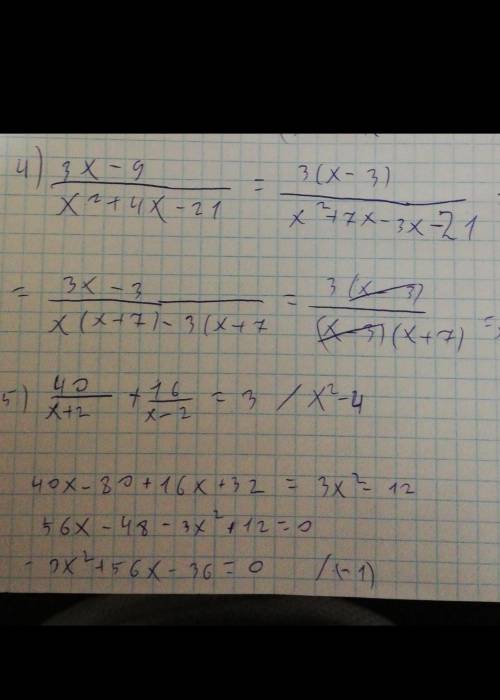 4) 3x-9 / x²+4x-21 = 3(x-3) / x²+7x-3x-21
= 3x-3 / x(x+7)-3(x+7 = 3(x-3) / (x-3)(x+7) =
5) 40/x+2 + 16/x-2 = 3 / x²-4
40x-80+16x+32 = 3x²-12
56x-48-3x²+12=0
-3x²+56x-36=0 /(-1)